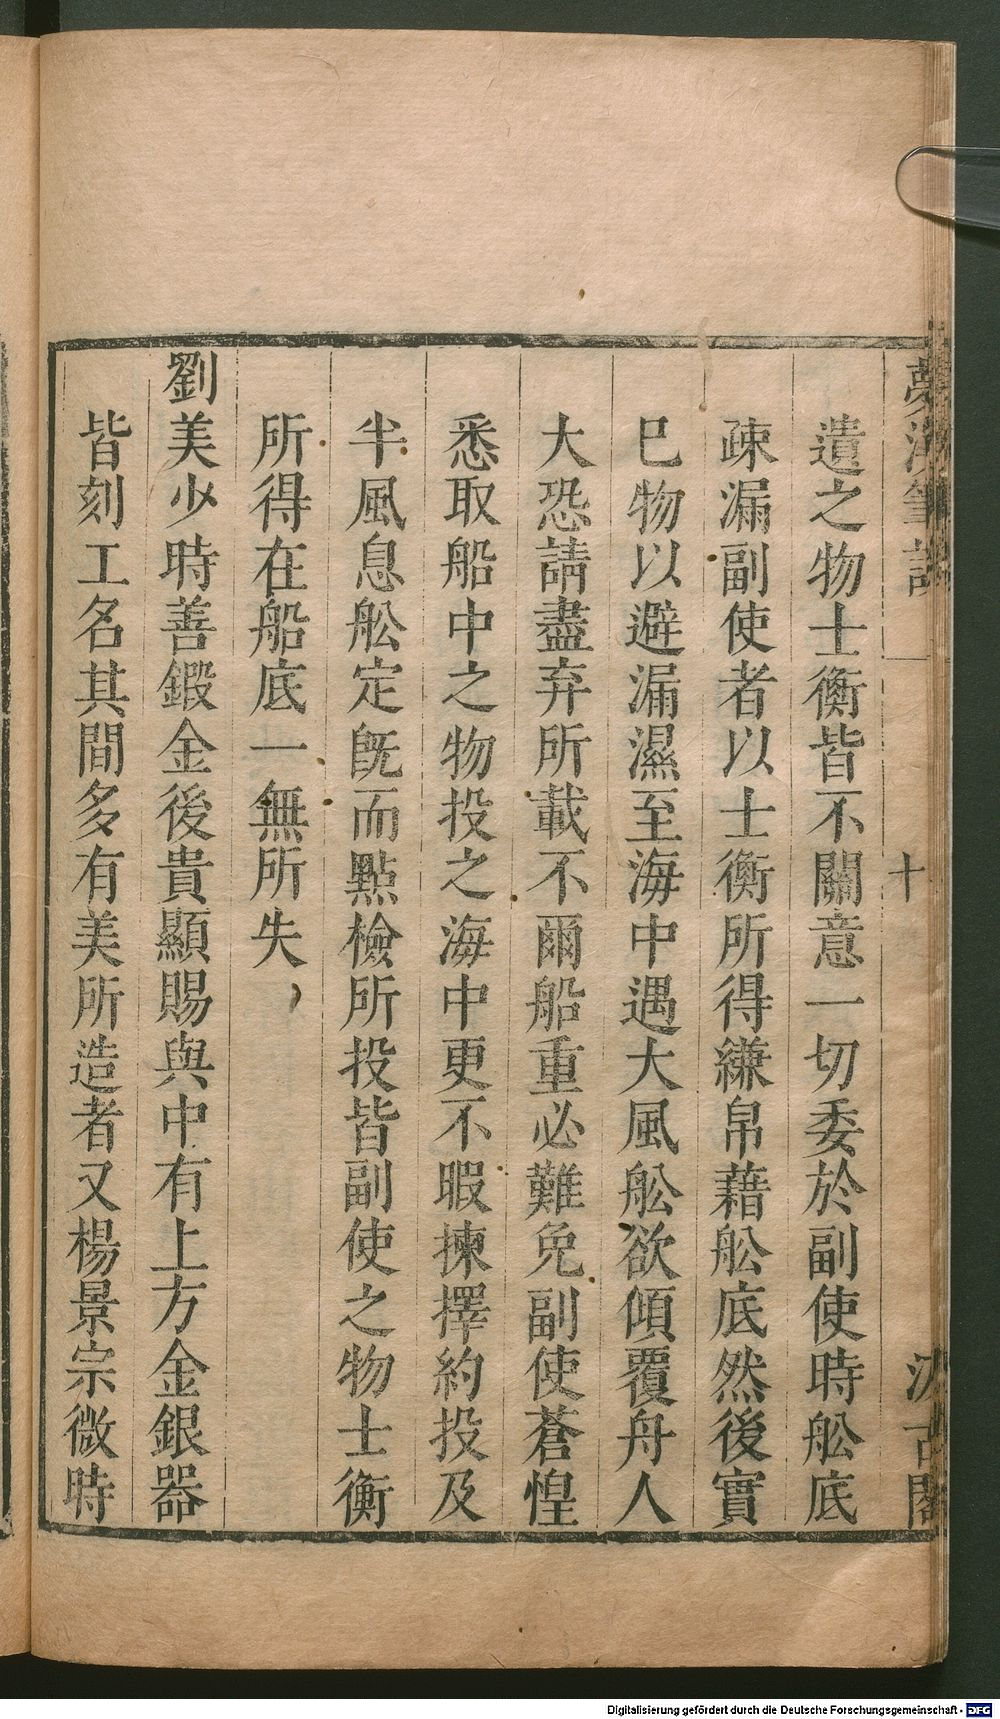 夢溪筆談
十
汲古閣
遺之物士衡皆不關意一切委於副使時舩底
疎漏副使者以士衡所得縑帛藉舩底然後實
巳物以避漏濕至海中遇大風舩欲傾覆舟人
大恐請盡弃所載不爾船重必難免副使蒼惶
悉取船中之物投之海中更不暇揀擇約投及
半風息舩定旣而點檢所投皆副使之物士衡
所得在船底一無所失
劉美少時善鍛金後貴顯賜與中有上方金銀器
皆刻工名其間多有美所造者又楊景宗微時
Digitalisierung gefördert durch die Deutsche Forschungsgemeinschaft - DFG